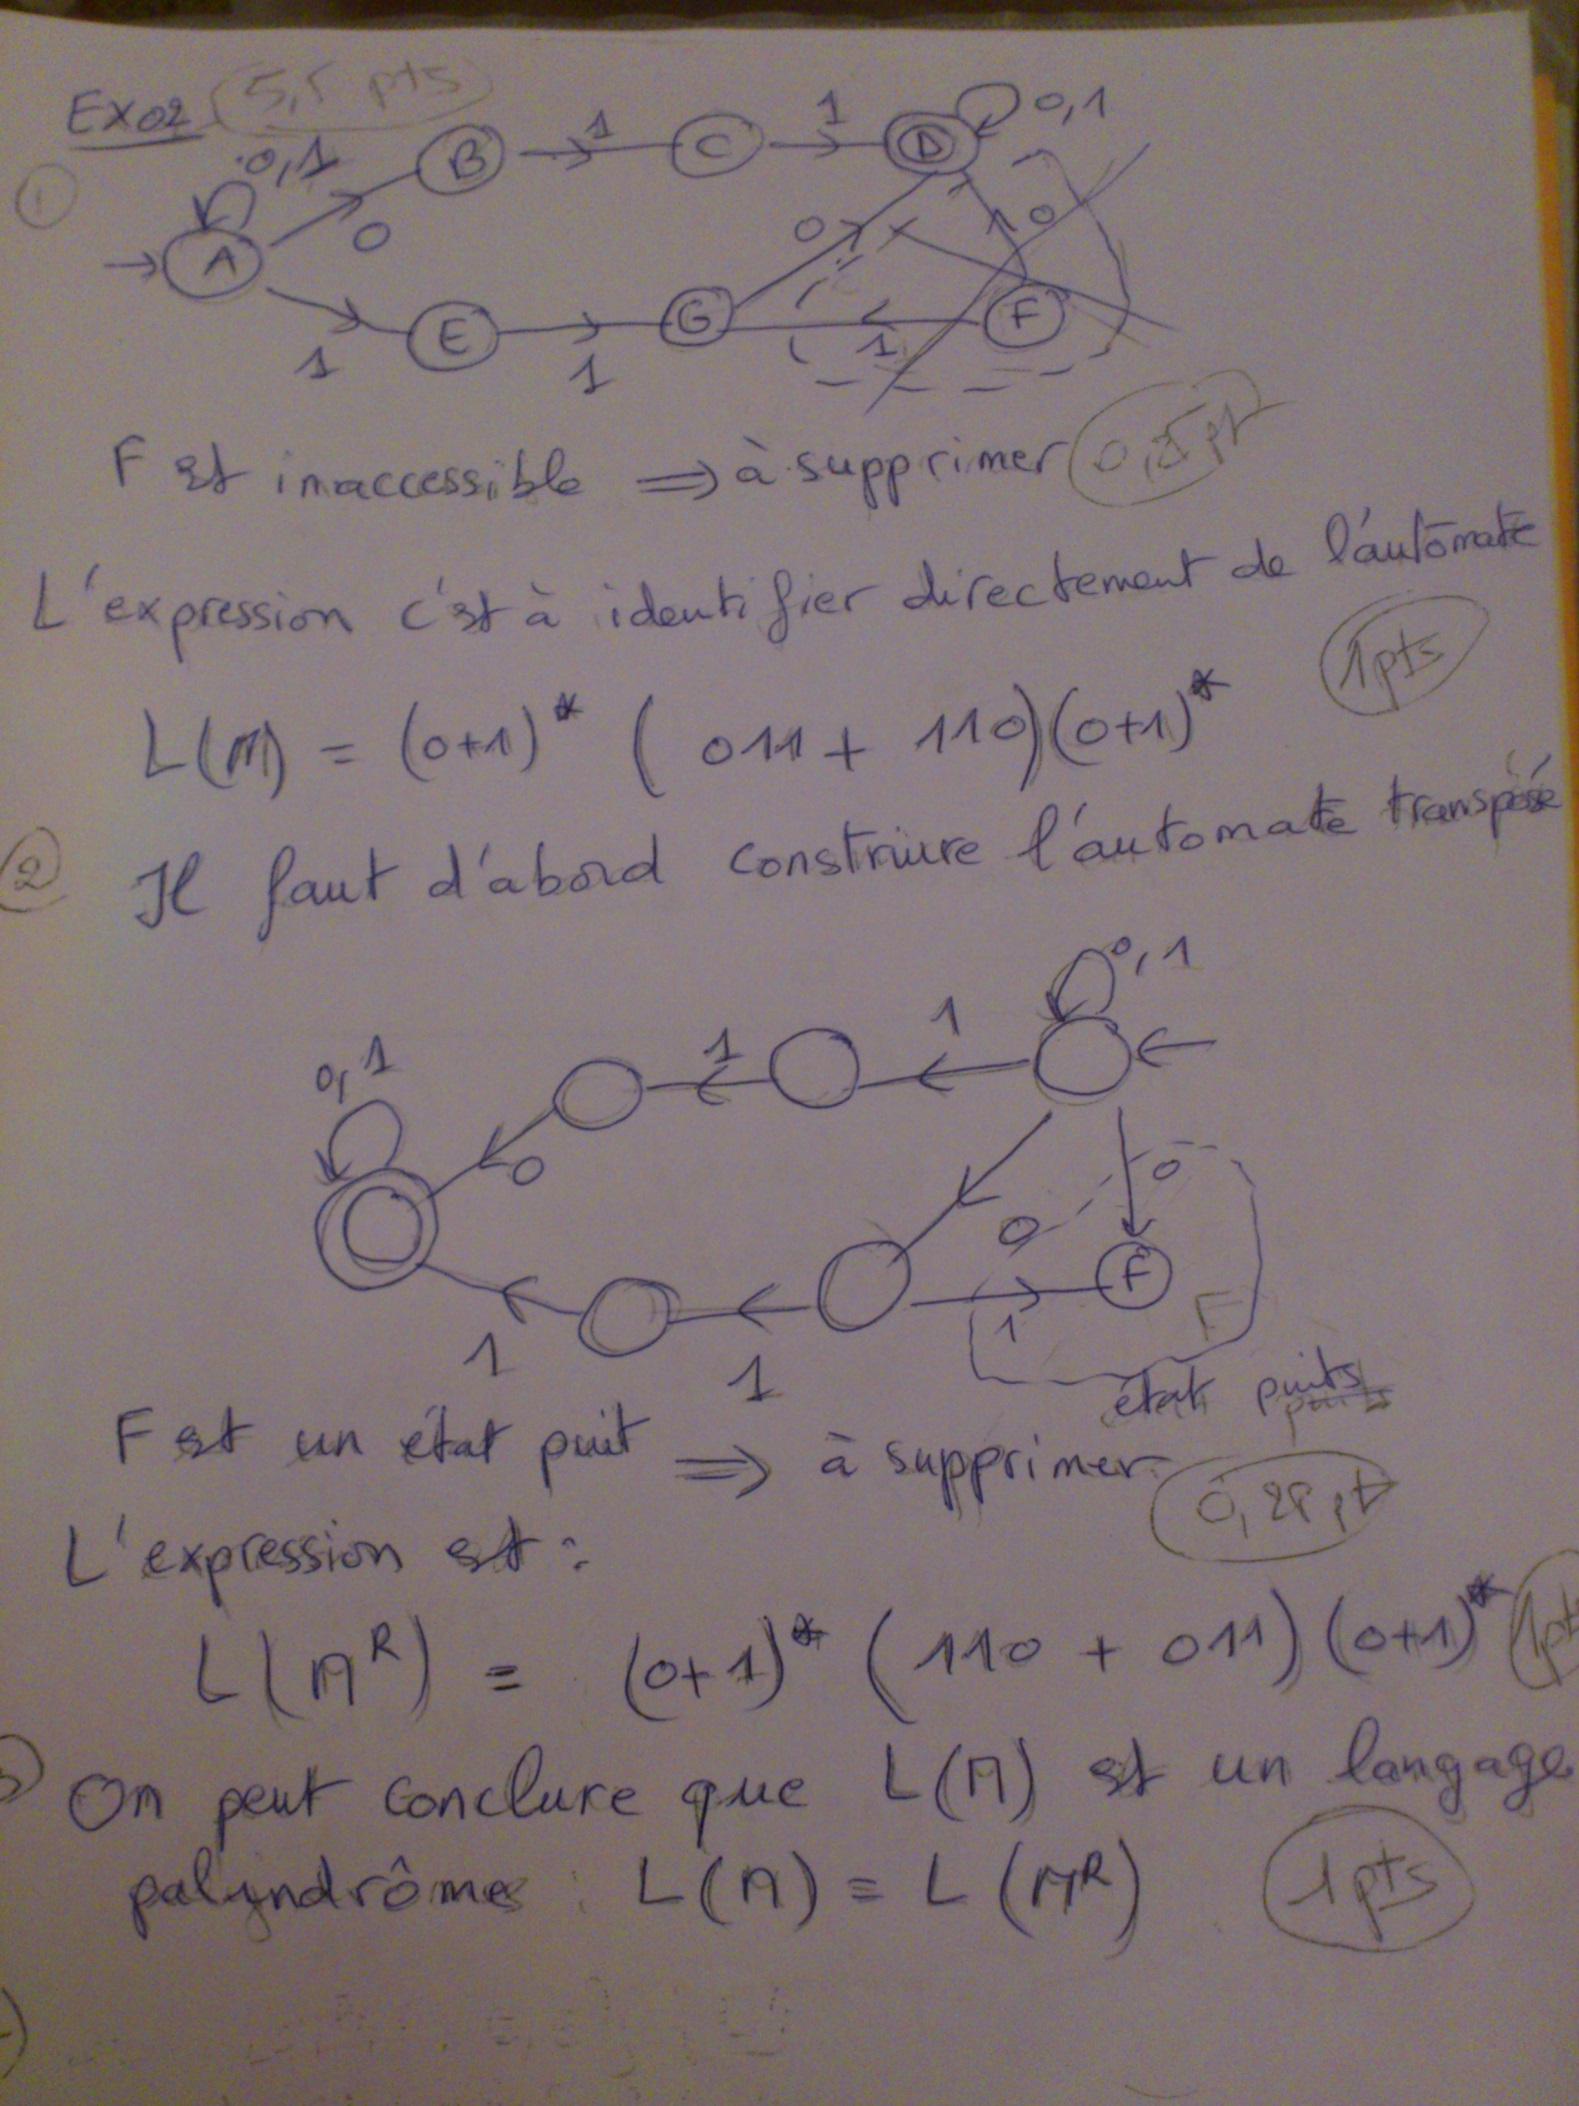 EX02 5,5 pts
1
0,1
A
0
B
1
C
1
D
0,1
1
E
1
G
0
1
F
0
F est inaccessible ⟹ à supprimer
L'expression c'est à identifier directement de l'automate
1pts
L(M) = (0+1)* ( 011 + 110)(0+1)*
2 Il faut d'abord construire l'automate transposé
0,1
0,1
1
1
0
0
0
F
1
F
1
1
état puits
F est un état puit ⟹ à supprimer
L'expression est :
L(M^R) = (0+1)* (110 + 011) (0+1)* 1pt
On peut conclure que L(M) est un langage
palyndrôme : L(M) = L(M^R) 1pts